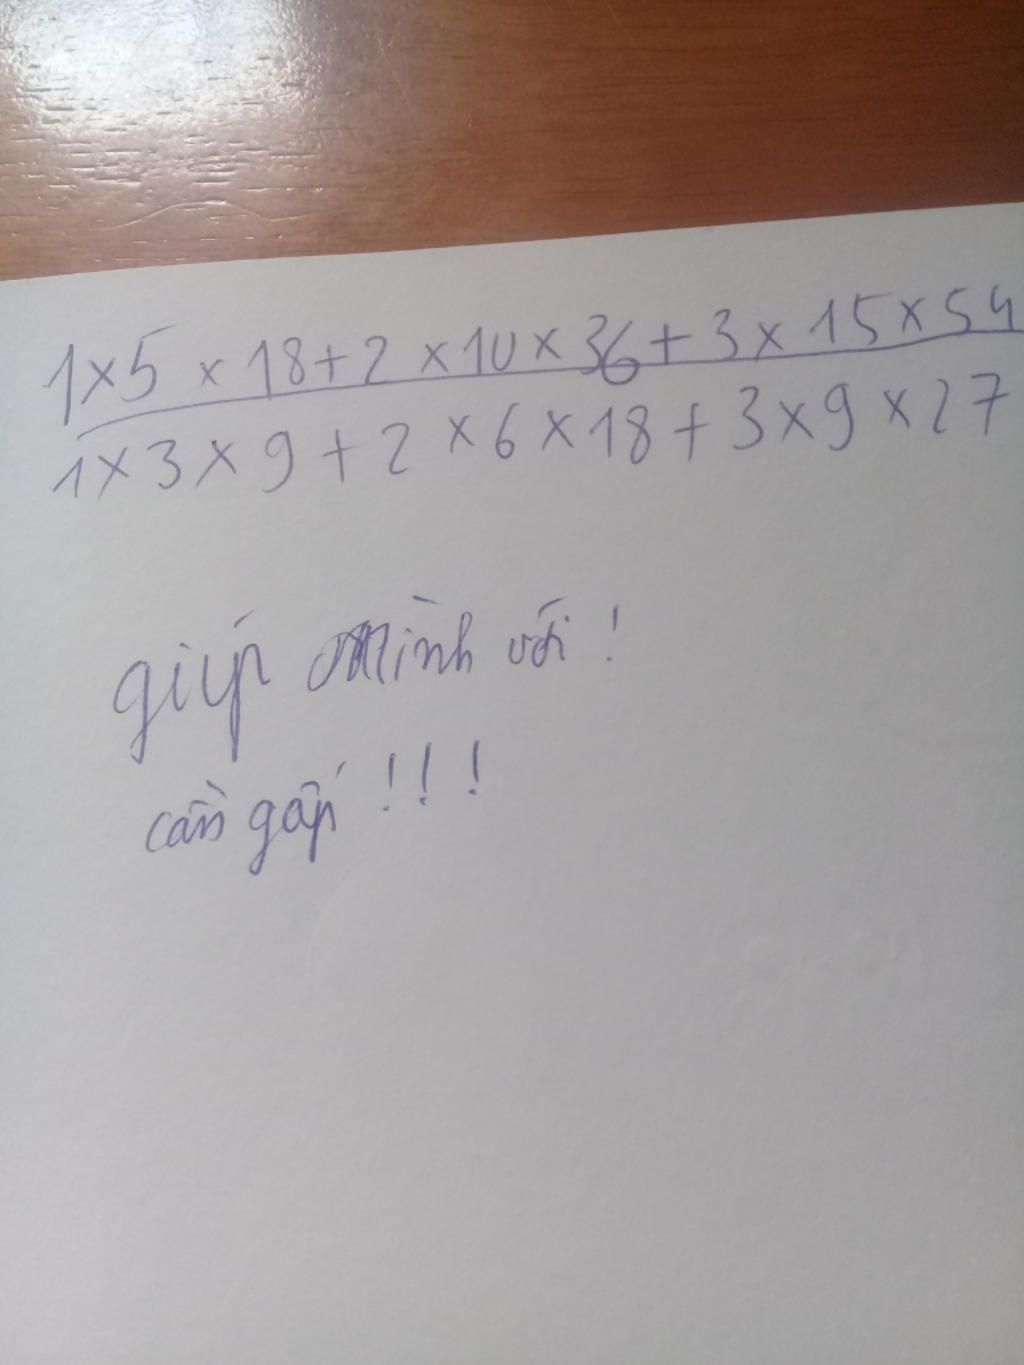 1×5×18+2×10×36+3×15×54
1×3×9+2×6×18+3×9×27
giúp mình với !
cần gấp !!!